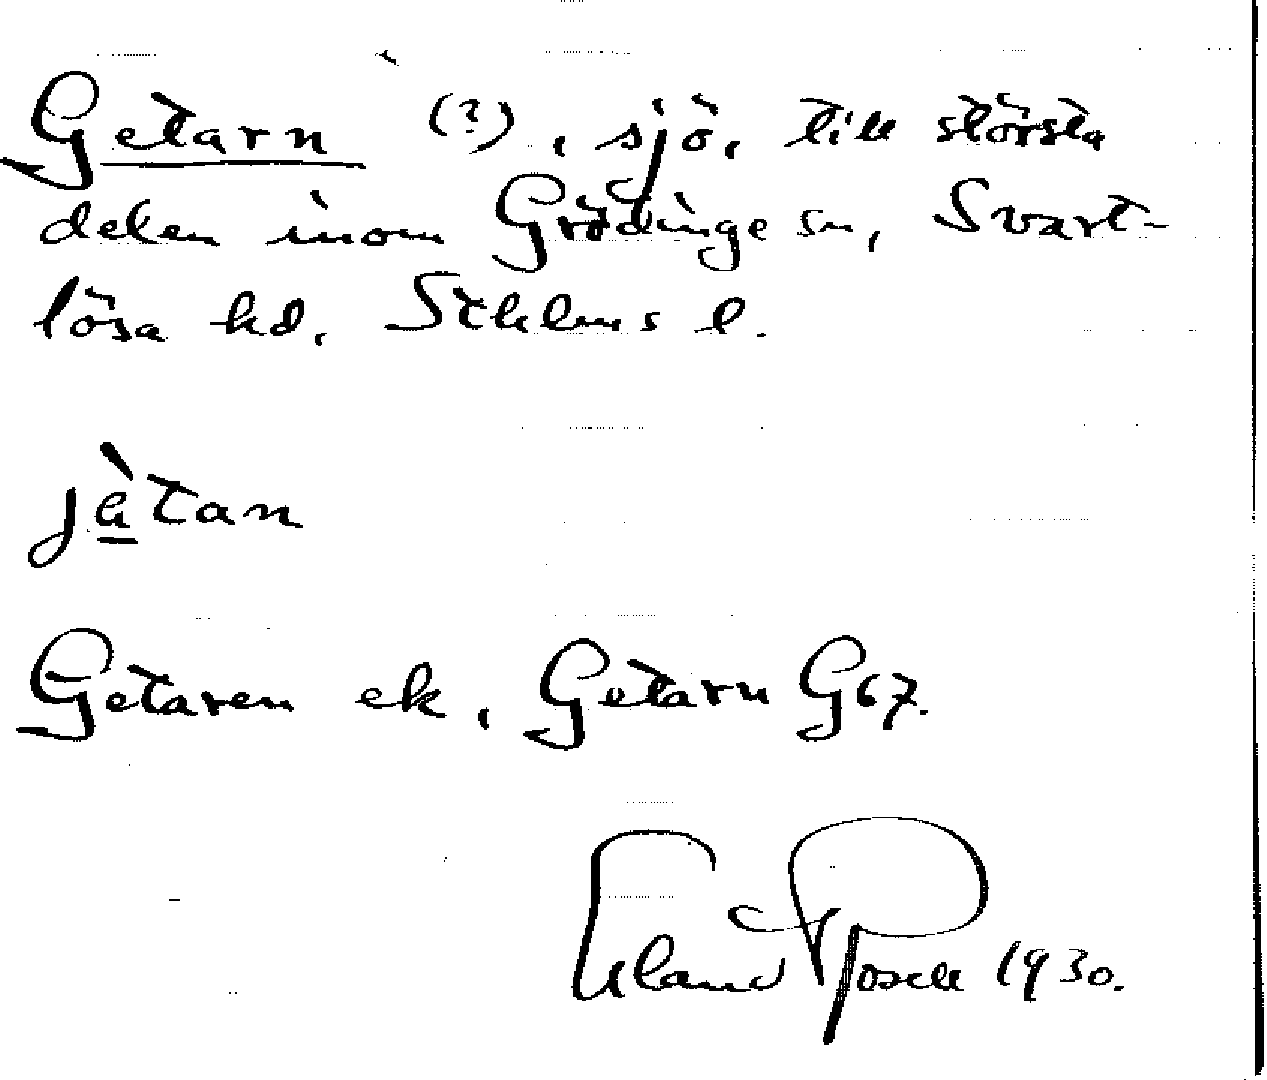 Getarn (?), sjö, till största
delen inom Grödinge sn, Svart-
lösa hd, Sthlms l.
jàtan
Getaren ek, Getarn G67.
Erland Rosell 1930.